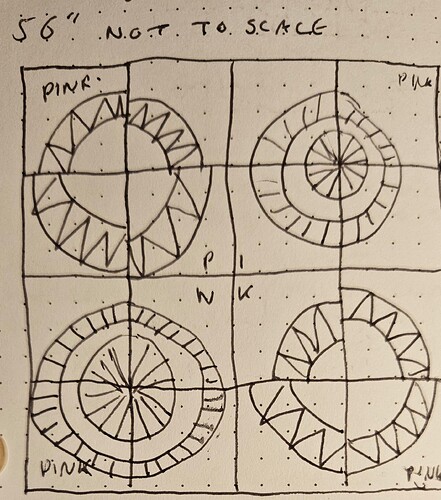 56" NOT TO SCALE
PINK
PINK
P I
N K
PINK
PINK